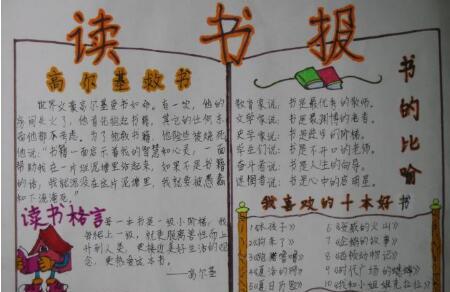 读书报
高尔基救书
世界文豪高尔基爱书如命。有一次,他的
房间失火了,他首先抱起书籍,其它的任何东
西他都不考虑。为了抢救书籍,他险些被烧死。
他说:"书籍一面启示着我的智慧和心灵,一面
帮助我在一片烂泥塘里站起来,如果不是书籍
的话,我就沉没在这片泥塘里,我就要被愚蠢
和下流淹死。
读书格言
每一本书是一级小阶梯,我
每爬上一级,就更脱离兽性而上
升到人类,更接近美好生活的观
念,更热爱这本书。
——高尔基
书的比喻
教育家说:书是最优秀的教师。
史学家说:书是进步的阶梯。
学生们说:书是不开口的老师。
奋斗者说:书是人生的向导。
迷惘者说:书是心中的启明星。
我喜欢的十本好书
1《妹孩子》
2《狗来了》
6《爱葳的火山》
7《企鹅的故事》
8《拯救动物记》
4《夏洛的网》
9《时代广场的蟋蟀》